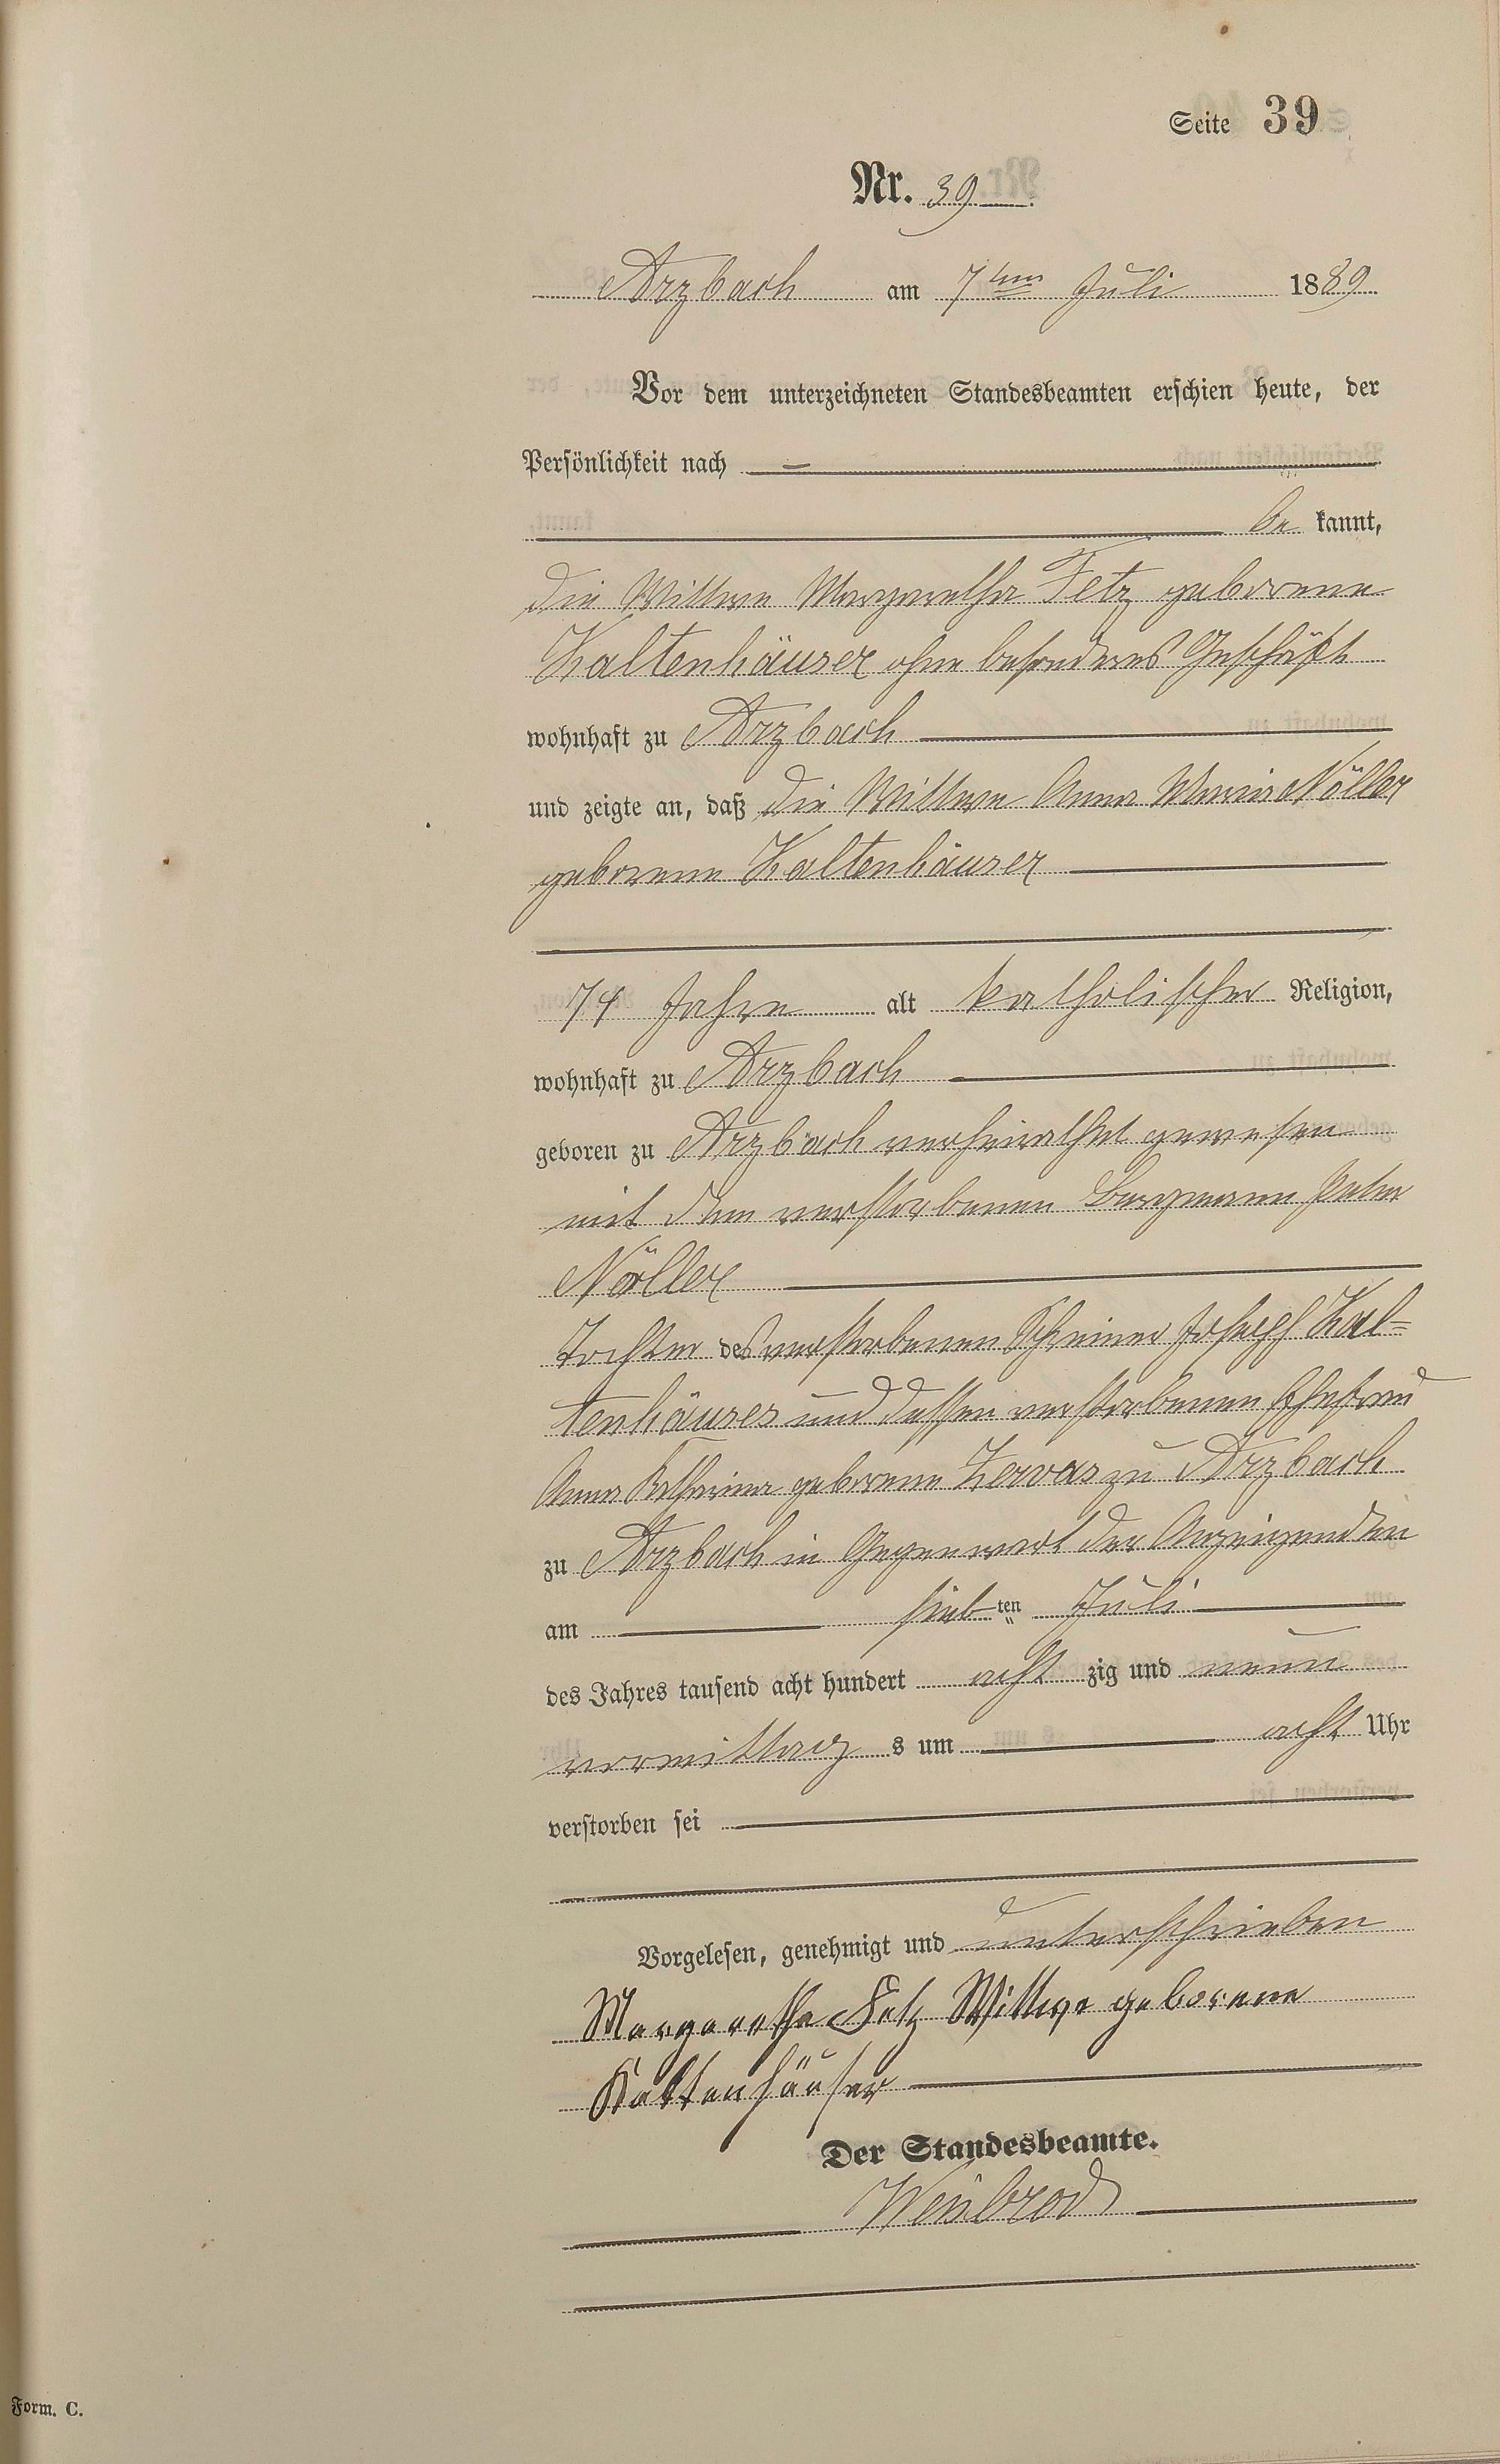 Seite 39
Nr. 39
Arzbach am 7ten Juli 1889
Vor dem unterzeichneten Standesbeamten erschien heute, der
Persönlichkeit nach
be kannt,
die Wittwe Margaretha Fetz geborene
Kaltenhäuser ohne besonderes Geschäft
wohnhaft zu Arzbach
und zeigte an, daß die Wittwe Anna Maria Nöller
geborene Kaltenhäuser
74 Jahre alt katholischer Religion,
wohnhaft zu Arzbach
geboren zu Arzbach verheirathet gewesen
mit dem verstorbenen Bergmann Peter
Nöller
Tochter des verstorbenen Schreiner Joseph Kal-
tenhäuser und dessen verstorbenen Ehefrau
Anna Katharina geborene Zervas zu Arzbach
zu Arzbach in Gegenwart der Anzeigenden
am sieb ten Juli
des Jahres tausend acht hundert acht zig und neun
vormittag s um acht Uhr
verstorben sei
Vorgelesen, genehmigt und unterschrieben
Margaretha Fetz Wittwe geborene
Kaltenhäuser
Der Standesbeamte.
Weinbrod
Form. C.